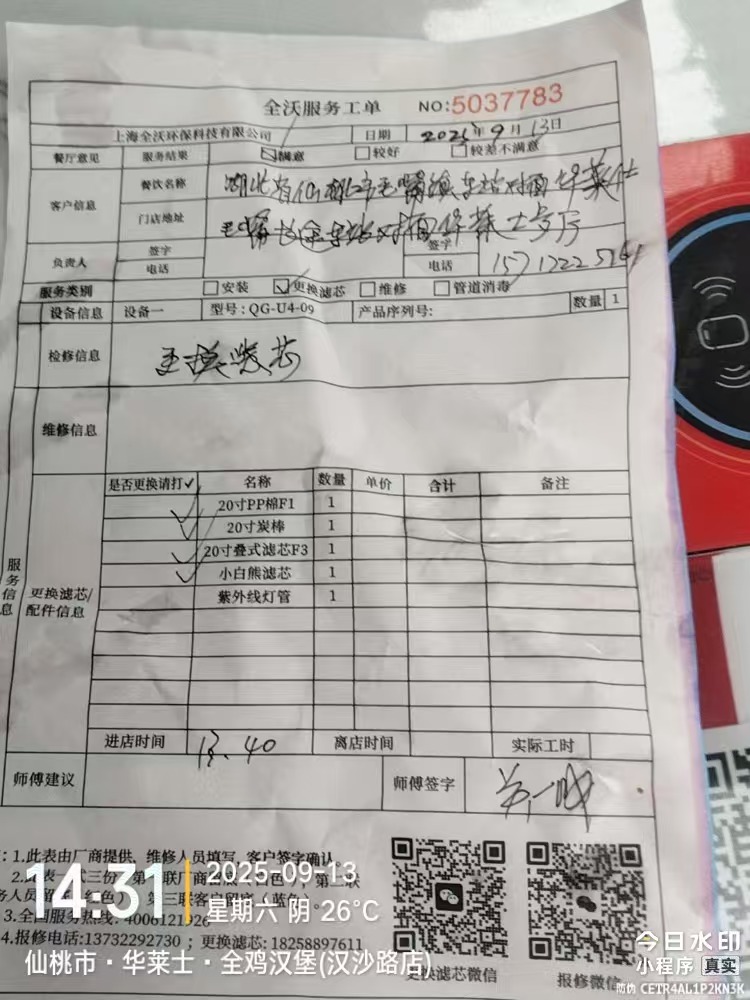 全沃服务工单 NO:5037783
上海全沃环保科技有限公司 日期 2025年9月13日
餐厅意见 服务结果 ☑满意 □较好 □较差不满意
客户信息 餐饮名称 湖北省仙桃市毛嘴镇车站对面华莱士
门店地址 毛嘴长途车站对面华莱士
负责人 签字 签字
电话 电话
服务类别 □安装 ☑更换滤芯 □维修 □管道消毒
设备信息 设备一 型号:QG-U4-09 产品序列号: 数量 1
检修信息 更换滤芯
维修信息
服务信息
更换滤芯/配件信息
是否更换请打✓ 名称 数量 单价 合计 备注
✓ 20寸PP棉F1 1
✓ 20寸炭棒 1
✓ 20寸叠式滤芯F3 1
✓ 小白熊滤芯 1
紫外线灯管 1
进店时间 13.40 离店时间 实际工时
师傅建议 师傅签字
1.此表由厂商提供,维修人员填写,客户签字确认。
3.全国服务热线:4006121926
4.报修电话:13732292730;更换滤芯:18258897611
更换滤芯微信 报修微信
14:31 2025-09-13
星期六 阴 26°C
仙桃市·华莱士·全鸡汉堡(汉沙路店)
今日水印
小程序 真实
防伪 CETR4AL1P2KN3K